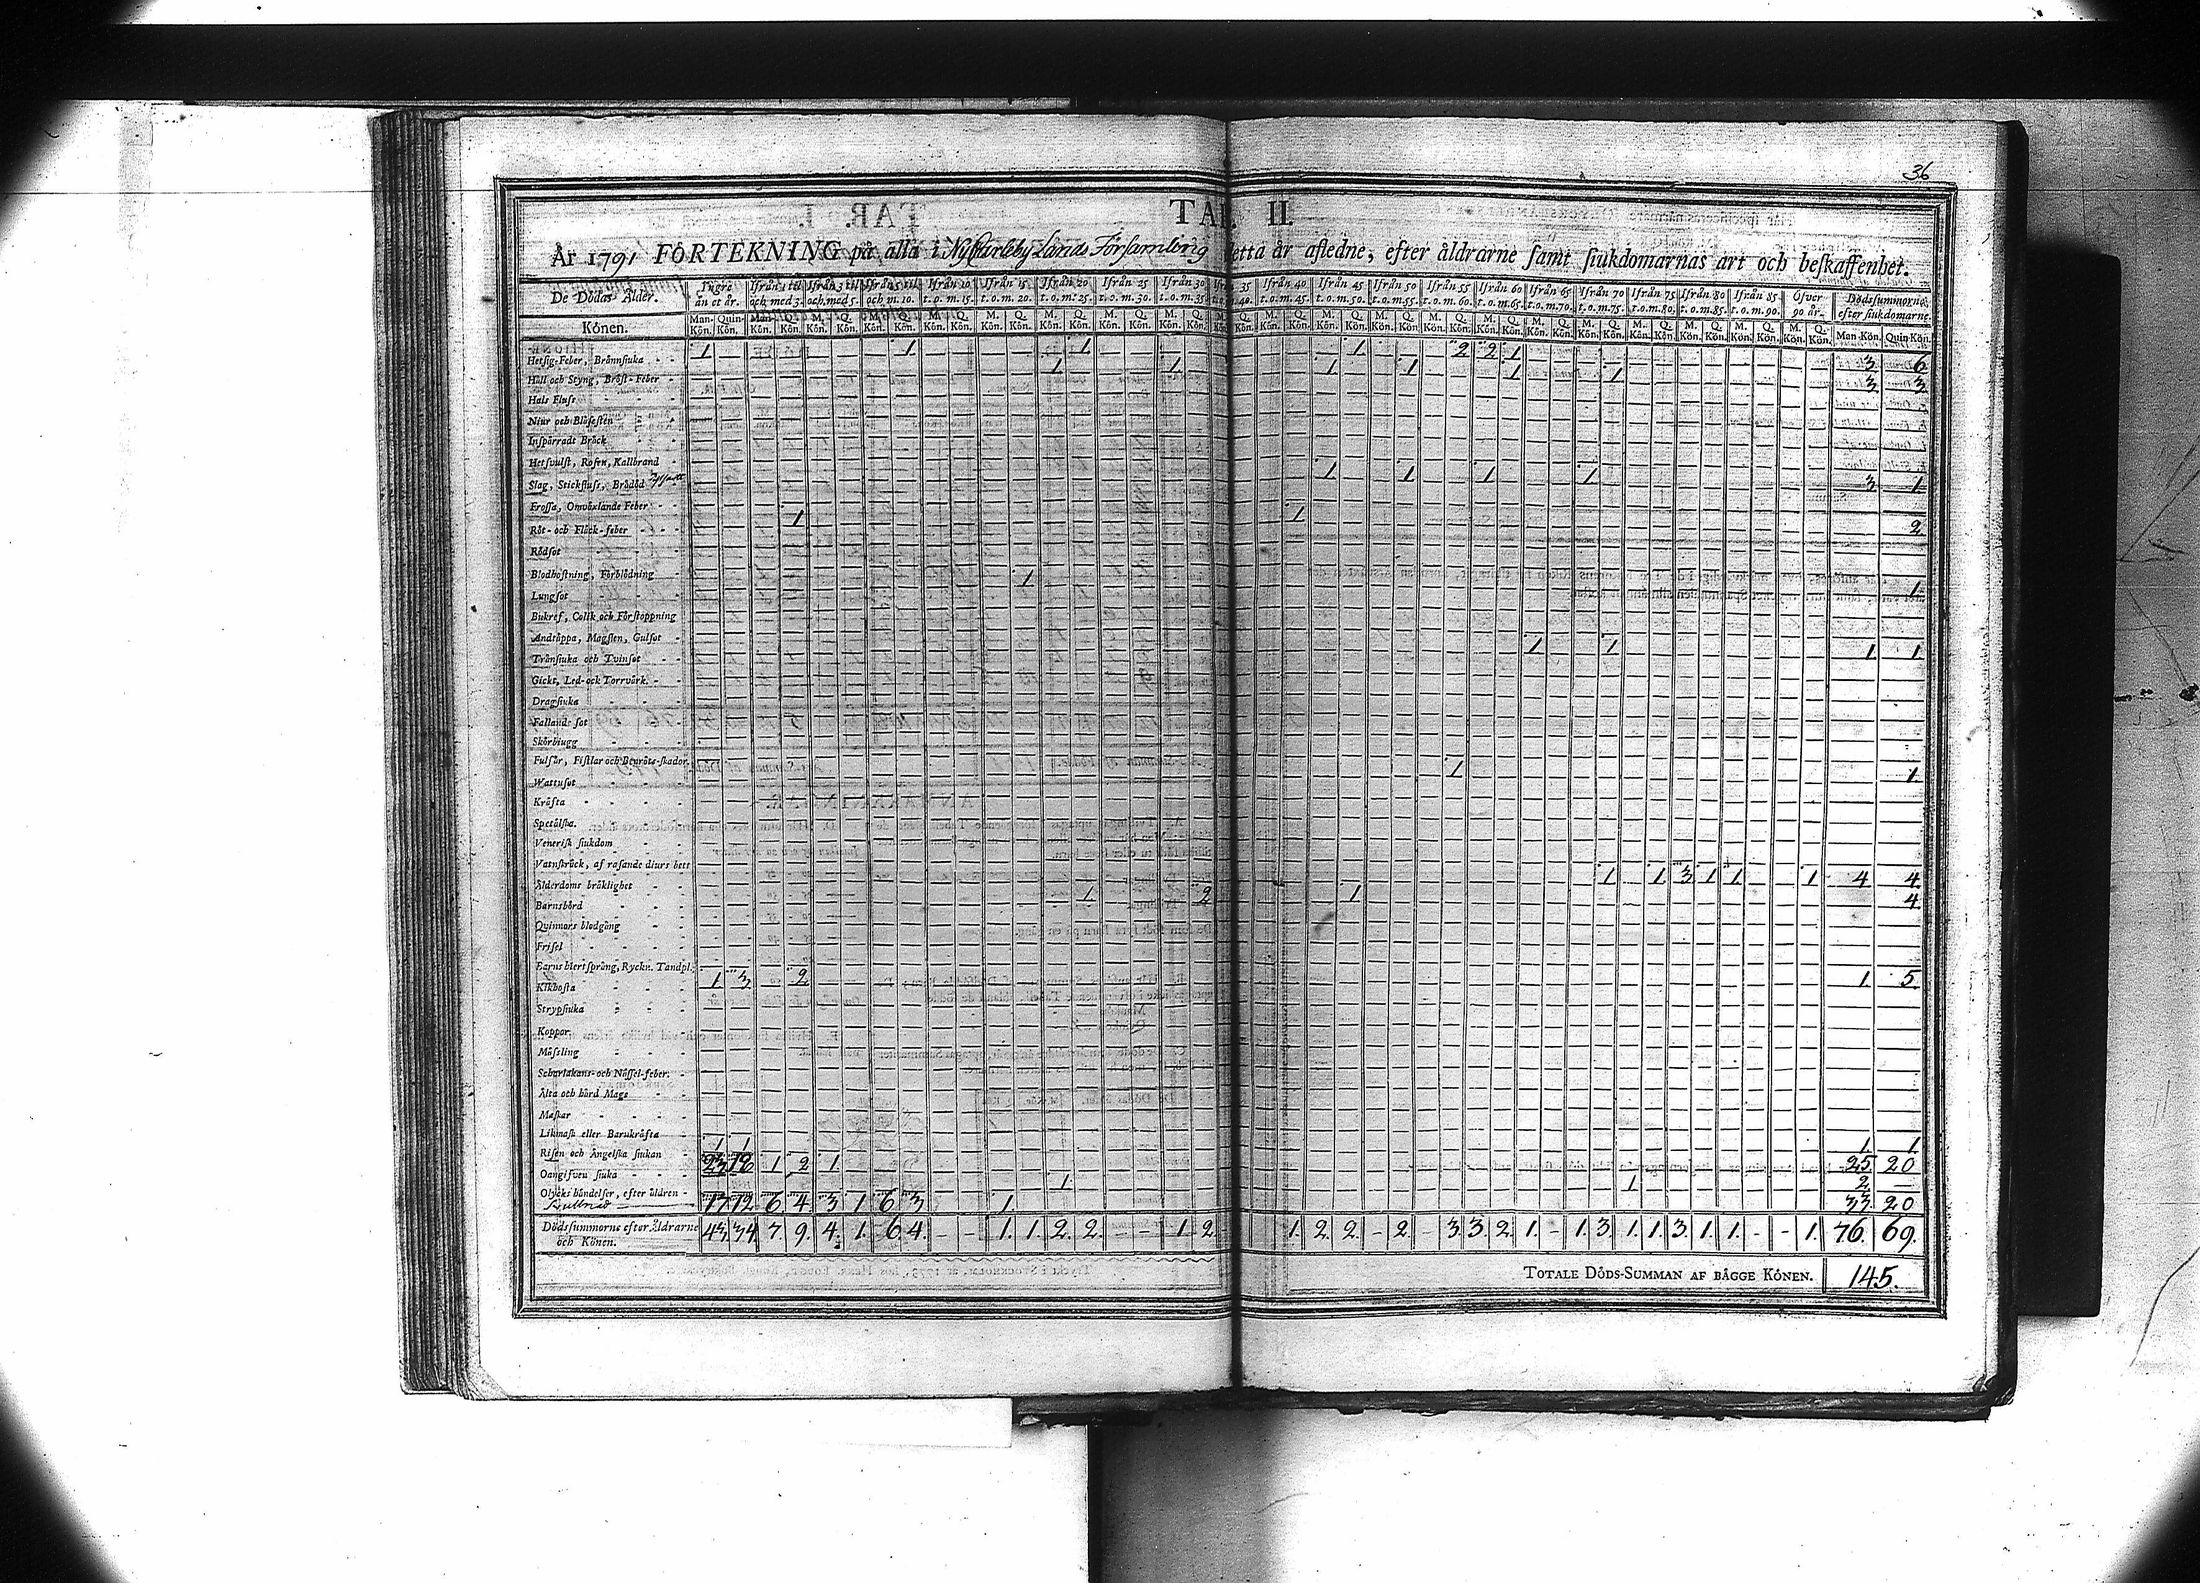 36
TAB. II.
År 1791 FÖRTEKNING på alla i Nyccarleby Lands Församling detta år afledne, efter åldrarne samt siukdomarnas art och beskaffenhet.
De Dödas Ålder. Yngre än et år. Ifrån 1 til och med 3. Ifrån 3 til och med 5. Ifrån 5 til och m. 10. Ifrån 10 t.o.m. 15. Ifrån 15 t.o.m. 20. Ifrån 20 t.o.m. 25. Ifrån 25 t.o.m. 30. Ifrån 30 t.o.m. 35. 35 40. Ifrån 40 t.o.m. 45. Ifrån 45 t.o.m. 50. Ifrån 50 t.o.m. 55. Ifrån 55 t.o.m. 60. Ifrån 60 t.o.m. 65. Ifrån 65 t.o.m. 70. Ifrån 70 t.o.m. 75. Ifrån 75 t.o.m. 80. Ifrån 80 t.o.m. 85. Ifrån 85 t.o.m. 90. Öfver 90 år. Dödssummorne, efter siukdomarne.
Könen. Man-Kön. Quin-Kön. Man-Kön. Q. Kön. M. Kön. Q. Kön. M. Kön. Q. Kön. M. Kön. Q. Kön. M. Kön. Q. Kön. M. Kön. Q. Kön. M. Kön. Q. Kön. M. Kön. Q. Kön. Q. Kön. M. Kön. Q. Kön. M. Kön. Q. Kön. M. Kön. Q. Kön. M. Kön. Q. Kön. M. Kön. Q. Kön. M. Kön. Q. Kön. M. Kön. Q. Kön. M. Kön. Q. Kön. M. Kön. Q. Kön. M. Kön. Q. Kön. M. Kön. Q. Kön. Man-Kön. Quin-Kön.
Hetsig-Feber, Brännsiuka - - 1 1 1 1 2 2 1 3 6
Håll och Styng, Bröst-Feber - 1 1 1 1 1 1 3 3
Hals Fluss
Niur och Blåsesten
Inspärradt Bråck
Hetsvulst, Rosen, Kallbrand
Slag, Stickfluss, Brådöd 1 1 1 1 3 1
Frossa, Omväxlande Feber
Röt- och Fläck-feber 1 1 2
Rödsot
Blodhostning, Förblödning
Lungsot 1 1
Bukref, Colik och Förstoppning
Andtäppa, Magsten, Gulsot
Trånsiuka och Tvinsot 1 1 1 1
Gickt, Led- ock Torrvärk.
Dragsiuka
Falland-sot
Skörbiugg
Fulsår, Fistlar och Benröte-skador
Wattusot 1 1
Kräfta
Spetälska.
Venerisk siukdom
Vatnskräck, af rasande diurs bett
Ålderdoms bräklighet 1 1 3 1 1 1 4 4
Barnsbörd 1 2 1 4
Quinnors blodgång
Frisel
Barns hiertsprång, Ryckn. Tandpl.
Kikhosta 1 3 2 1 5
Strypsiuka
Koppor.
Mässling
Scharlakans- och Nässel-feber.
Älta och hård Mage
Maskar
Likmask eller Barnkräfta
Risen och Ängelska siukan 1 1 1 1
Oangifven siuka 23 18 1 2 1 25 20
Olycks händelser, efter äldren - 1 1 2 -
17 12 6 4 3 1 6 3 1 33 20
Dödssummorne efter åldrarne och Könen. 43 34 7. 9. 4. 1. 6. 4. - - 1. 1. 2. 2. - - 1. 2. 1. 2. 2. - 2. - 3. 3. 2. 1. - 1. 3. 1. 1. 3. 1. 1. - - 1. 76. 69.
TOTALE DÖDS-SUMMAN AF BÄGGE KÖNEN. 145.